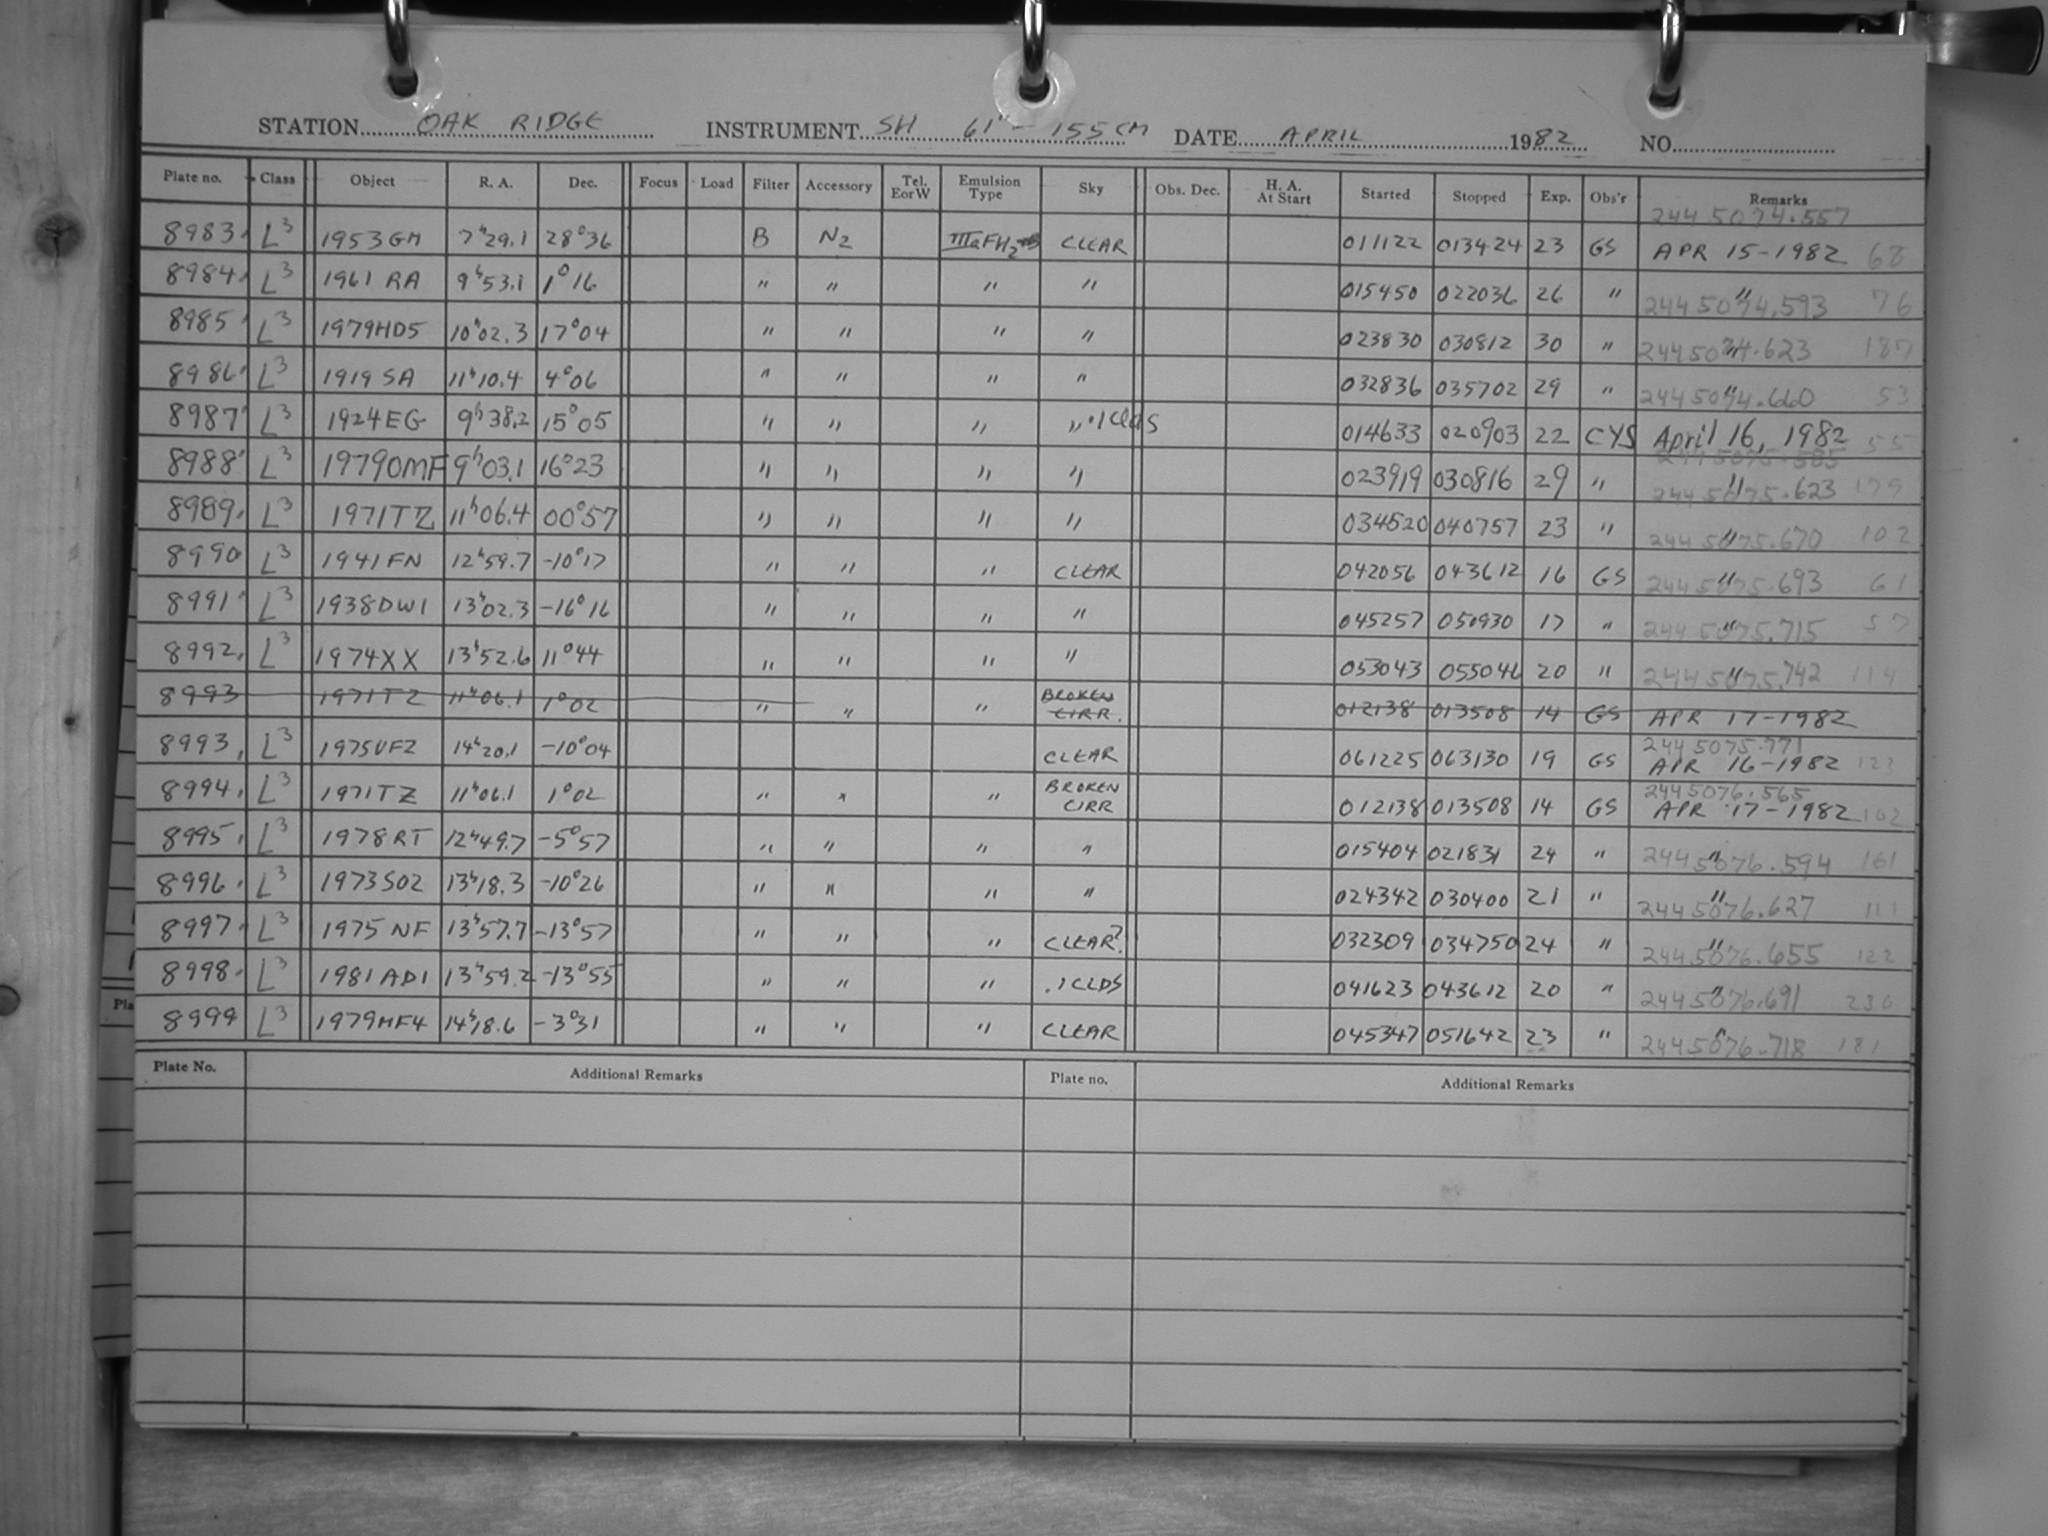 STATION OAK RIDGE INSTRUMENT SH 61" - 155 CM DATE APRIL 1982 NO.
Plate no. Class Object R. A. Dec. Focus Load Filter Accessory Tel. E or W Emulsion Type Sky Obs. Dec. H. A. At Start Started Stopped Exp. Obs'r Remarks
2445074.557
8983 L3 1953GM 7h29.1 28°36 B N2 IIIaFH2 CLEAR 011122 013424 23 GS APR 15-1982 68
8984 L3 1961 RA 9h53.1 1°16 " " " " 015450 022036 26 " " 2445074.593 76
8985 L3 1979HD5 10h02.3 17°04 " " " " 023830 030812 30 " " 2445074.623 187
8986 L3 1919 SA 11h10.4 4°06 " " " " 032836 035702 29 " " 2445074.660 53
8987 L3 1924EG 9h38.2 15°05 " " " " .1 clds 014633 020903 22 CYS April 16, 1982 55
2445075.585
8988 L3 1979OMF 9h03.1 16°23 " " " " 023919 030816 29 " " 2445075.623 179
8989 L3 1971TZ 11h06.4 00°57 " " " " 034520 040757 23 " " 2445075.670 102
8990 L3 1941FN 12h59.7 -10°17 " " " CLEAR 042056 043612 16 GS " 2445075.693 61
8991 L3 1938DW1 13h02.3 -16°16 " " " " 045257 050930 17 " " 2445075.715 57
8992 L3 1974XX 13h52.6 11°44 " " " " 053043 055046 20 " " 2445075.742 114
8993 1971TZ 11h06.1 1°02 " " " BROKEN CIRR. 012138 013508 14 GS APR 17-1982
2445075.771
8993 L3 1975VFZ 14h20.1 -10°04 CLEAR 061225 063130 19 GS APR 16-1982 123
2445076.565
8994 L3 1971TZ 11h06.1 1°02 " " " BROKEN CIRR 012138 013508 14 GS APR 17-1982 102
8995 L3 1978RT 12h49.7 -5°57 " " " " 015404 021831 24 " " 2445076.594 161
8996 L3 1973SO2 13h18.3 -10°26 " " " " 024342 030400 21 " " 2445076.627 111
8997 L3 1975 NF 13h57.7 -13°57 " " " CLEAR? 032309 034750 24 " " 2445076.655 122
8998 L3 1981 AD1 13h59.2 -13°55 " " " .1 CLDS 041623 043612 20 " " 2445076.691 230
8999 L3 1979MF4 14h18.6 -3°31 " " " CLEAR 045347 051642 23 " " 2445076.718 181
Plate No. Additional Remarks Plate no. Additional Remarks